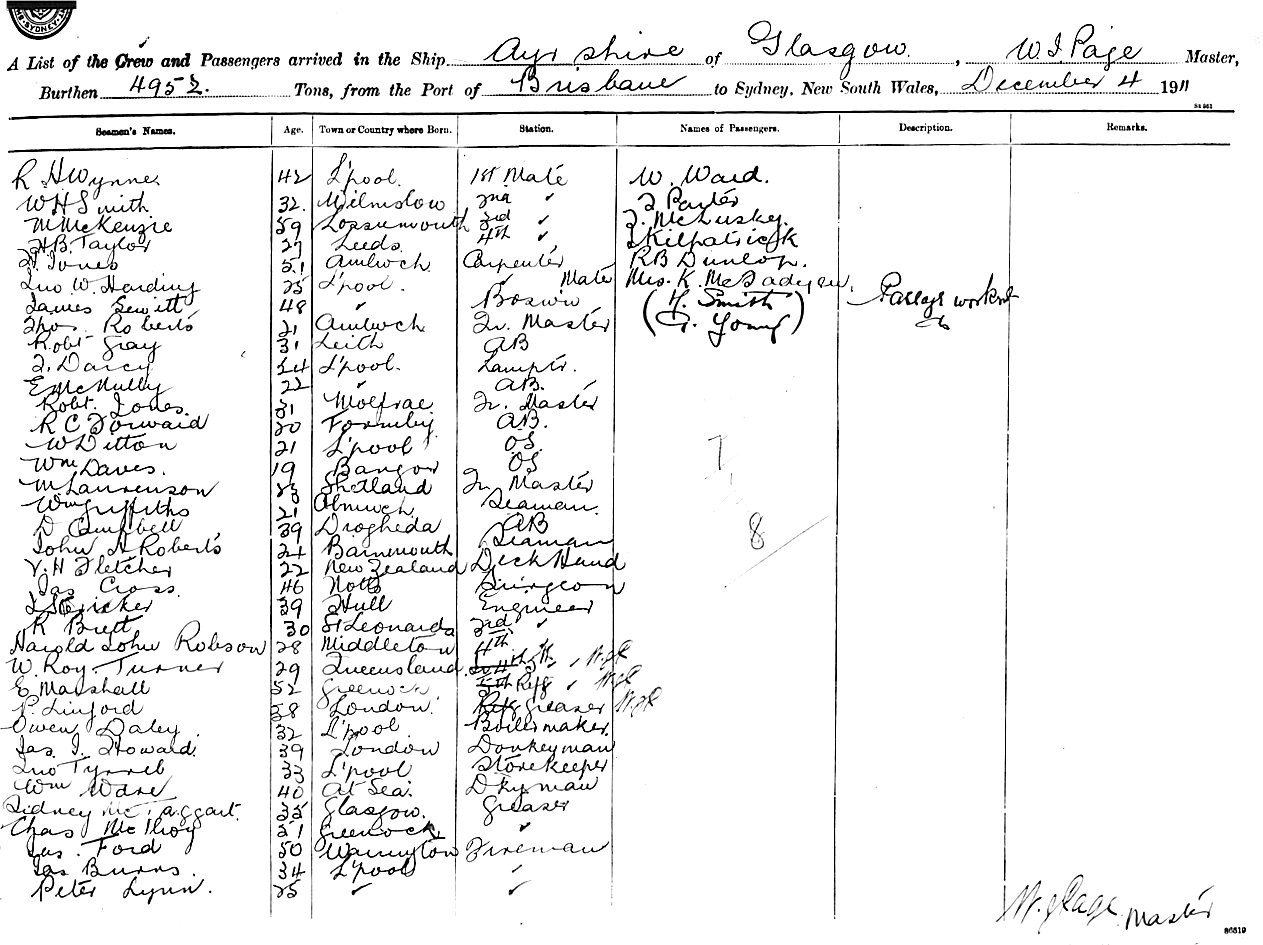 SYDNEY
A List of the Crew and Passengers arrived in the Ship Ayrshire of Glasgow, W J Page Master,
Burthen 4952. Tons, from the Port of Brisbane to Sydney, New South Wales, December 4 1911
Seamen's Names. Age. Town or Country where Born. Station. Names of Passengers. Description. Remarks.
R H Wynne 42 L'pool. 1st Mate W. Ward.
W H Smith 32. Wilmslow 2nd " Porter
M McKenzie 59 Lossiemouth 3rd " McLuskey.
H.B. Taylor 27 Leeds. 4th " Kilpatrick
Jones 51 Amlwch Carpenter RB Dunlop.
Jno W. Harding 25 L'pool. " Mate Mrs. K. McFadyen.
James Hewitt 48 " Bosun (H. Smith Passage workers
Thos. Roberts 21 Amlwch Qr. Master G. Young)
Robt Gray 31 Leith AB
Darcy 54 L'pool. Lamptr.
E McNully 22 " AB.
Robt. Jones. 31 Qr. Master
R C Forward 20 Formby AB.
W Ditton 21 L'pool OS
Wm Daves. 19 Bangor OS
M Laurenson 23 Shetland Qr Master
Wm Griffiths 21 Seaman.
D Campbell 39 Drogheda AB
John H Roberts 24 Barmouth Seaman
V. H Fletcher 22 New Zealand Deck Hand
Jas Cross. 46 Notts Surgeon
39 Hull Engineer
R Brett 30 St Leonards 3rd "
Harold John Robson 28 Middleton 4th "
W. Roy Turner 29 Queensland 5th "
E Marshall 52 Greenock Refg "
P. Linford 38 London. Greaser
Owen Daley 32 L'pool Boilermaker.
Jas. J. Howard 39 London Donkeyman
Jno Tyrrell 33 L'pool Storekeeper
Wm Ware 40 At Sea. Dkyman
Sidney McTaggart. 35 Glasgow. Greaser
Chas McIlroy 51 Greenock "
Jas. Ford 50 Warrington Fireman
Jas Burns. 34 L'pool "
Peter Lynn. 25 " "
7
8
W. J Page Master
86519